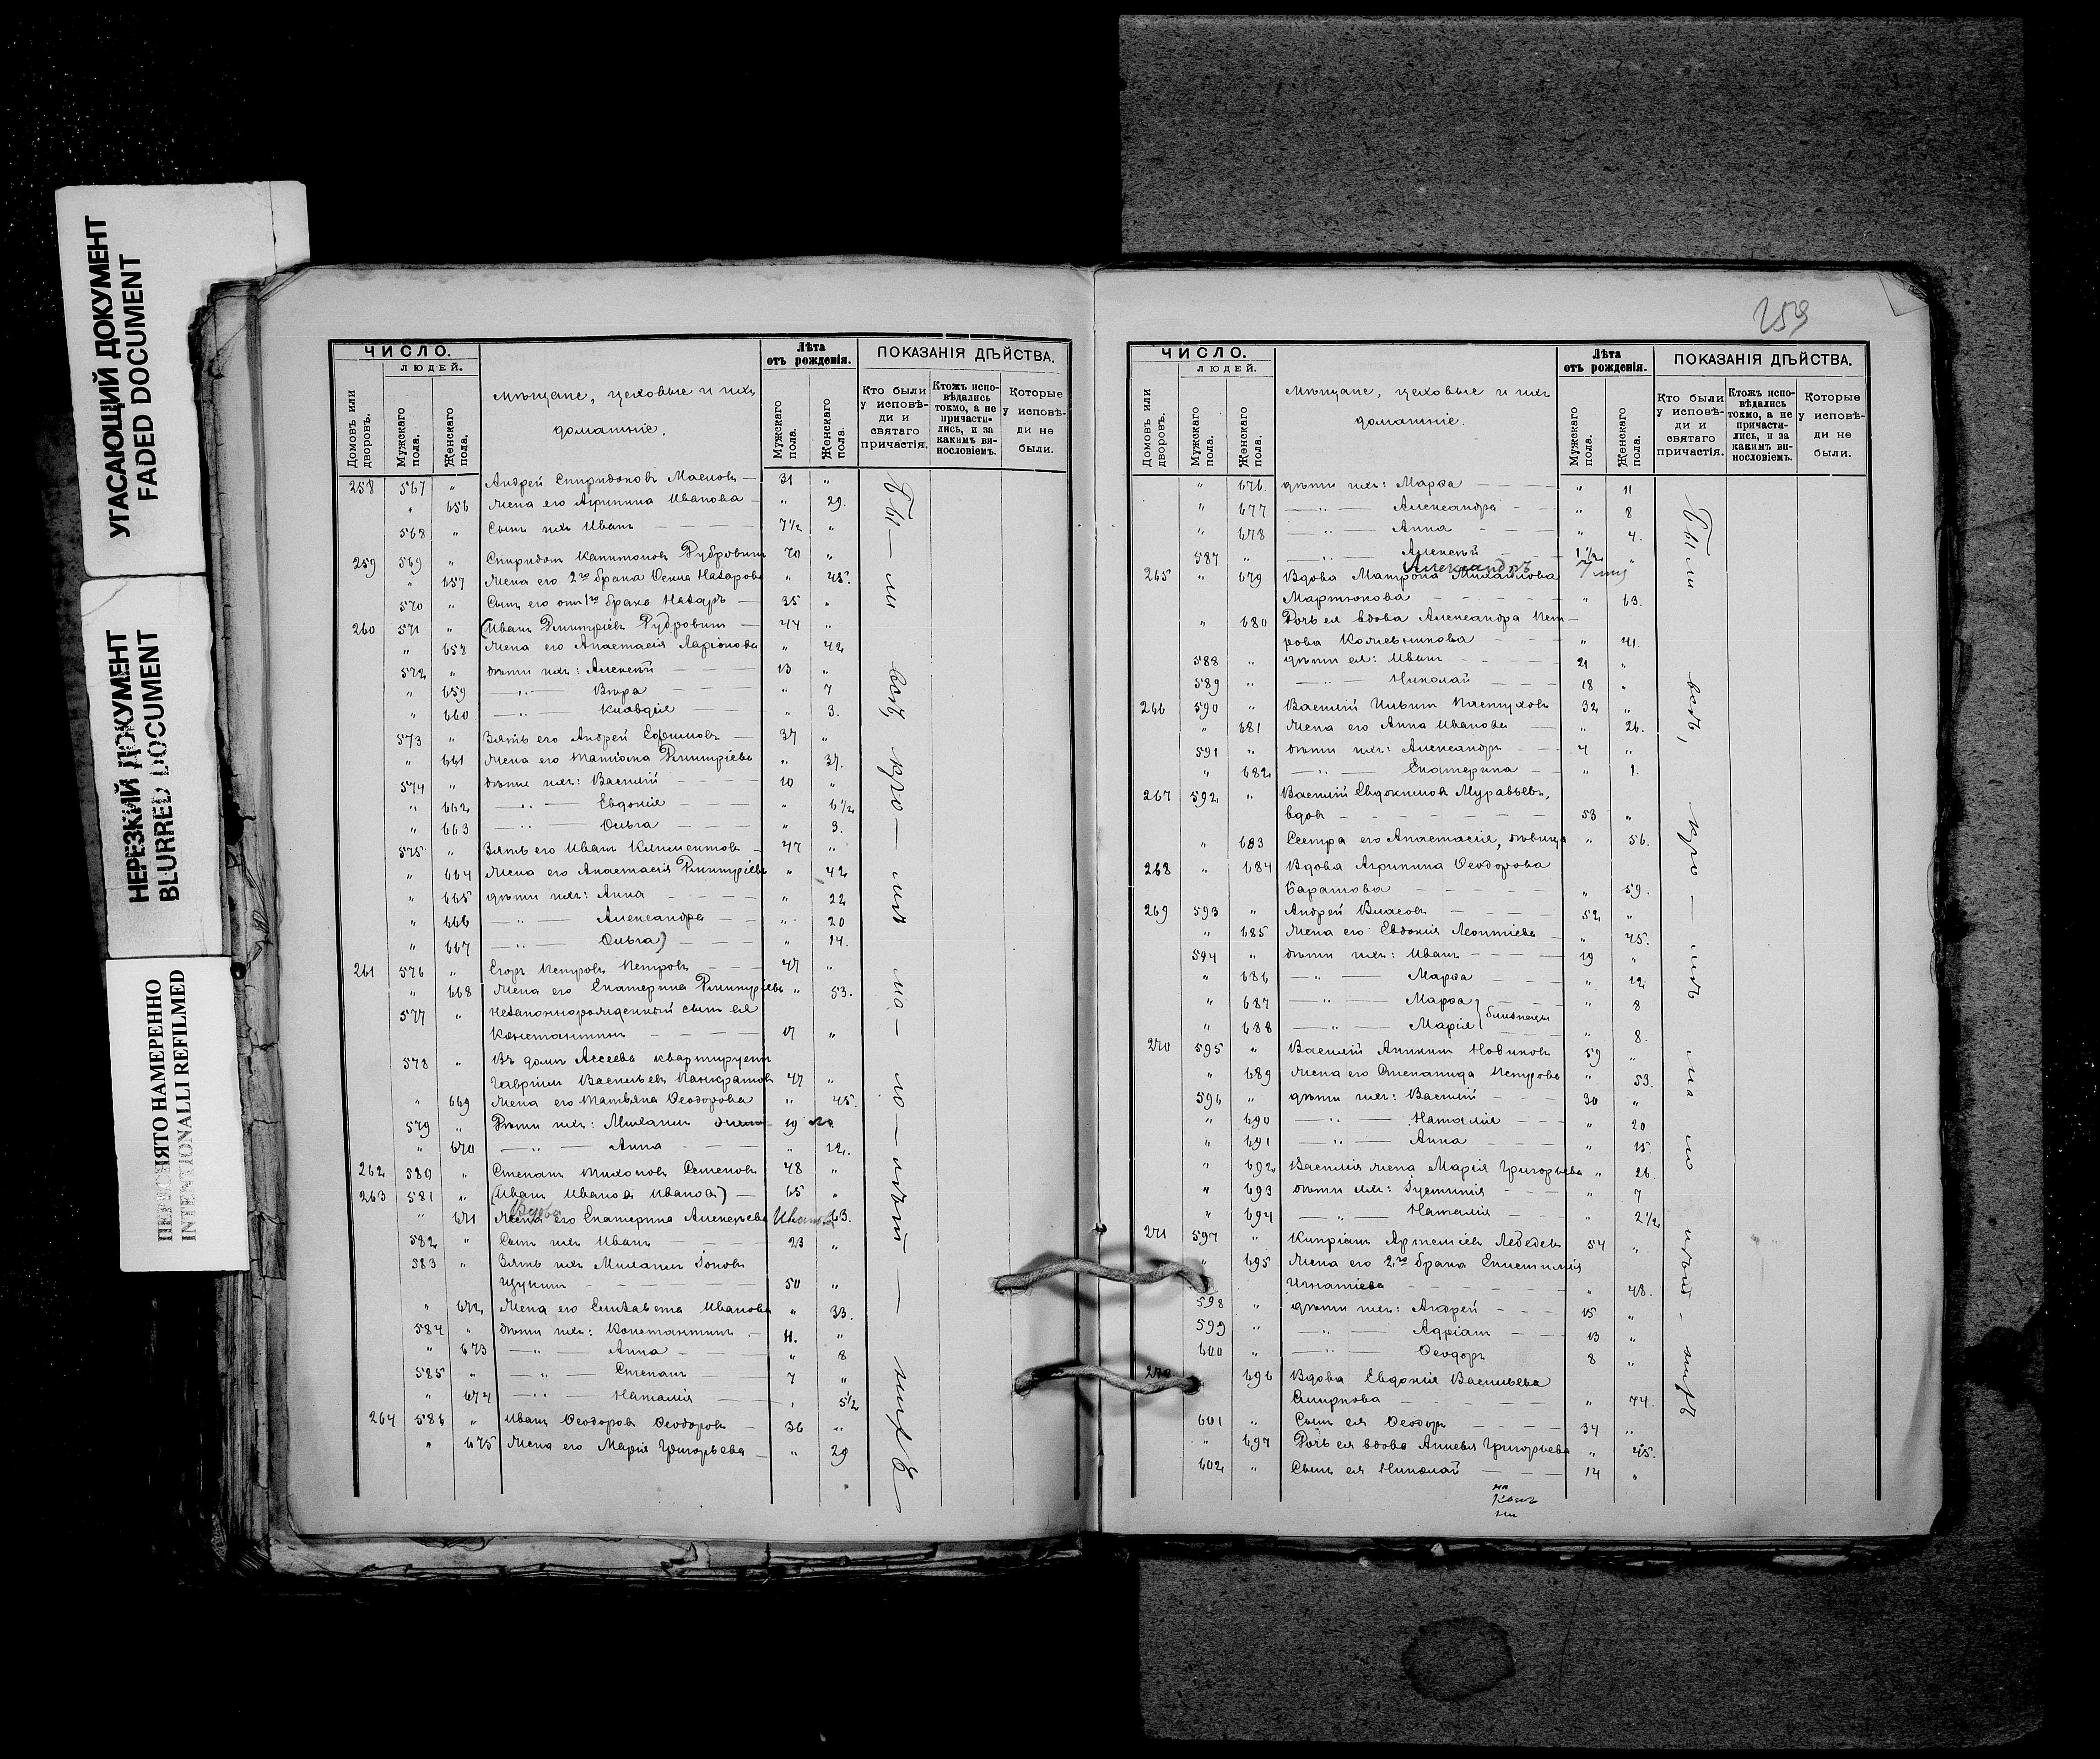 УГАСАЮЩИЙ ДОКУМЕНТ
FADED DOCUMENT
НЕРЕЗКИЙ ДОКУМЕНТ
BLURRED DOCUMENT
ПЕРЕСНЯТО НАМЕРЕННО
INTENTIONALLI REFILMED
ЧИСЛО.
ЛЮДЕЙ.
Домовъ или дворовъ.
Мужскаго пола.
Женскаго пола.
Мѣщане, цеховые и ихъ
домашніе.
Лѣта
отъ рожденія.
Мужскаго пола.
Женскаго пола.
ПОКАЗАНІЯ ДѢЙСТВА.
Кто были у исповѣди и святаго причастія.
Ктожъ исповѣдались токмо, а не причастились, и за какимъ винословіемъ.
Которые у исповѣди не были.
258 567 " Андрей Спиридоновъ Масловъ — 31 "
" 656 Жена его Агрипина Иванова — " 29.
568 " Сынъ ихъ Иванъ — — — 7½ "
259 569 " Спиридонъ Капитоновъ 70 "
" 657 Жена его 2го брака Ѳекла Назарова " 48.
570 " Сынъ его отъ 1го брака Назаръ — 35 "
260 571 " (Иванъ Дмитріевъ — 44 "
" 658 Жена его Анастасія Ларіонова " 42
572 " дѣти ихъ: Алексѣй 13 "
" 659 — " — Вѣра — — — " 7
" 660 — " — Клавдія — — " 3.
573 " Зять его Андрей Ефимовъ — 37 "
" 661 Жена его Татіана Дмитріева " 37.
574 " дѣти ихъ: Василій — — — 10 "
" 662 — " — Евдокія — — — " 6½
" 663 — " — Ольга — — — " 3.
575 " Зять его Иванъ Климентовъ — 47 "
" 664 Жена его Анастасія Дмитріева " 42
" 665 дѣти ихъ: Анна — — — — " 22
" 666 — " — Александра — — " 20
" 667 — " — Ольга) — — — " 14.
261 576 " Егоръ Петровъ Петровъ — — 47 "
" 668 Жена его Екатерина Дмитріева " 53.
577 " Незаконнорожденный сынъ ея
Константинъ — — — — 17 "
578 " Въ домѣ Асеева квартируетъ
Гавріилъ Васильевъ Панкратовъ 47 "
" 669 Жена его Татьяна Ѳеодорова " 45.
579 " Дѣти ихъ: Михаилъ 19
" 670 — " — Анна — — — " 12.
262 580 " Степанъ Тихоновъ Семеновъ 48 "
263 581 " (Иванъ Ивановъ Ивановъ) — 65 "
Вдова
" 671 Жена его Екатерина Алексѣева Иванова 63.
582 " Сынъ ихъ Иванъ — — — 23 "
583 " Зять ихъ Михаилъ Іоновъ
Щукинъ — — — — — 50 "
" 672 Жена его Елизавета Иванова " 33.
584 " дѣти ихъ: Константинъ — 11. "
" 673 — " — Анна — — — " 8
585 " — " — Степанъ — — 7 "
" 674 — " — Наталія — — " 5½
264 586 " Иванъ Ѳеодоровъ Ѳеодоровъ — 36 "
" 675 Жена его Марія Григорьева — " 29
Бы — ли всѣ, кро — мѣ ма — ло — лѣтн —
259
ЧИСЛО.
ЛЮДЕЙ.
Домовъ или дворовъ.
Мужскаго пола.
Женскаго пола.
Мѣщане, цеховые и ихъ
домашніе.
Лѣта
отъ рожденія.
Мужскаго пола.
Женскаго пола.
ПОКАЗАНІЯ ДѢЙСТВА.
Кто были у исповѣди и святаго причастія.
Ктожъ исповѣдались токмо, а не причастились, и за какимъ винословіемъ.
Которые у исповѣди не были.
" 676. дѣти ихъ: Марѳа — — — — " 11
" 677 — " — Александра — — " 8
" 678 — " — Анна — — — " 4.
587 " — " — Алексѣй — — — 1½ "
Александръ
265 " 679 Вдова Матрона Михайлова
Мартюкова — — — — — " 63.
" 680 Дочь ея вдова Александра Пет—
рова Кожевникова — — — " 41.
588 " дѣти ея: Иванъ — — — — 21 "
589 " — " — Николай — — — 18 "
266 590 " Василій Ильинъ Пастуховъ 32 "
" 681 Жена его Анна Иванова — — " 26.
591 " дѣти ихъ: Александръ — — 4 "
" 682 — " — Екатерина — — " 1.
267 592 " Василій Евдокимовъ Муравьевъ,
вдовъ — — — — — — — 53 "
" 683 Сестра его Анастасія, дѣвица " 56.
268 " 684 Вдова Агрипина Ѳеодорова
Баратова — — — — — " 59.
269 593 " Андрей Власовъ — — — — 52 "
" 685 Жена его Евдокія Леонтіева — " 45.
594 " дѣти ихъ: Иванъ — — — — 19 "
" 686 — " — Марѳа — — — " 12
" 687 — " — Марѳа } — — — " 8
" 688 — " — Марія } близнецы " 8.
270 595 " Василій Аникинъ Новиковъ 59 "
" 689 Жена его Степанида Петрова " 53.
596 " дѣти ихъ: Василій — — — 30 "
" 690 — " — Наталія — — — " 20
" 691 — " — Анна — — — " 15.
" 692 Василія жена Марія Григорьева " 26.
" 693 дѣти ихъ: Іустинія — — — " 7
" 694 — " — Наталія — — — " 2½
271 597 " Кипріанъ Артеміевъ Лебедевъ 54 "
" 695 Жена его 2го брака Епистимія
Игнатіева — — — — — " 48.
598 " дѣти ихъ: Андрей — — — 15 "
599 " — " — Адріанъ — — 13 "
600 " — " — Ѳеодоръ 8 "
272 696 Вдова Евдокія Васильева
Смирнова — — — — — " 74.
601 " Сынъ ея Ѳеодоръ — — — 34 "
" 697 Дочь ея вдова Григорьева " 45.
602 " Сынъ ея Николай — — — 14 "
Были всѣ, кро — мѣ ма ло лѣтн -